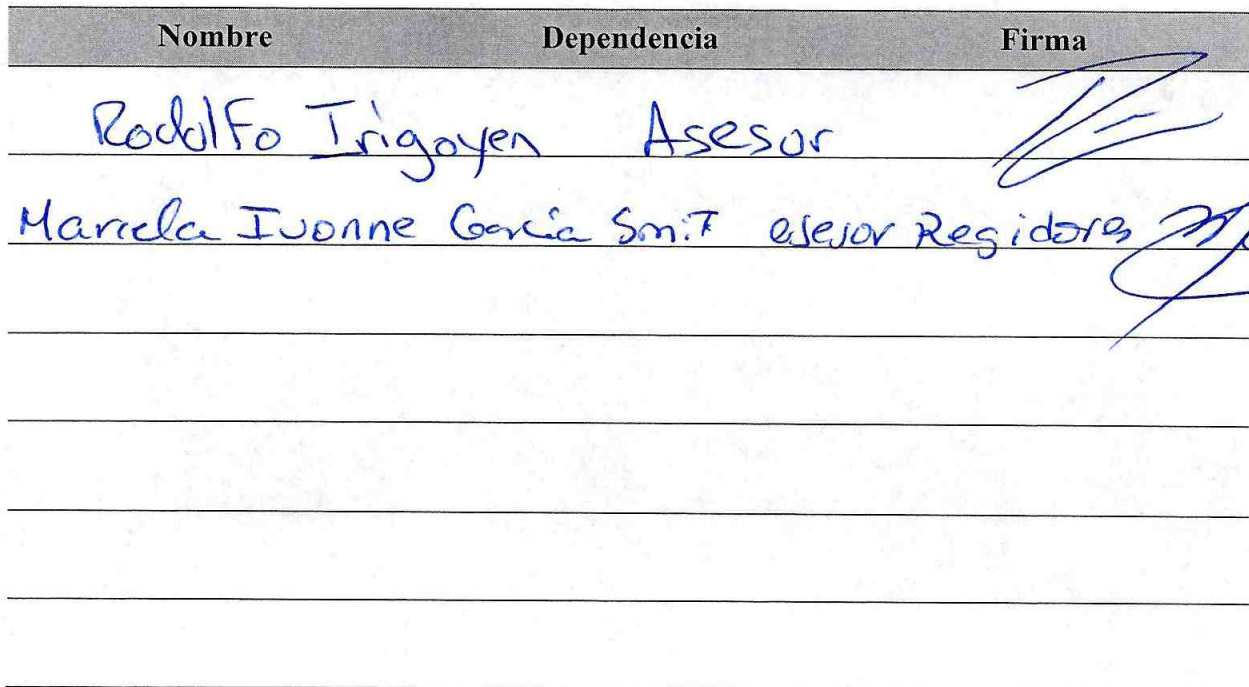 Nombre Dependencia Firma
Rodolfo Irigoyen Asesor
Marcela Ivonne García Smit asesor Regidores